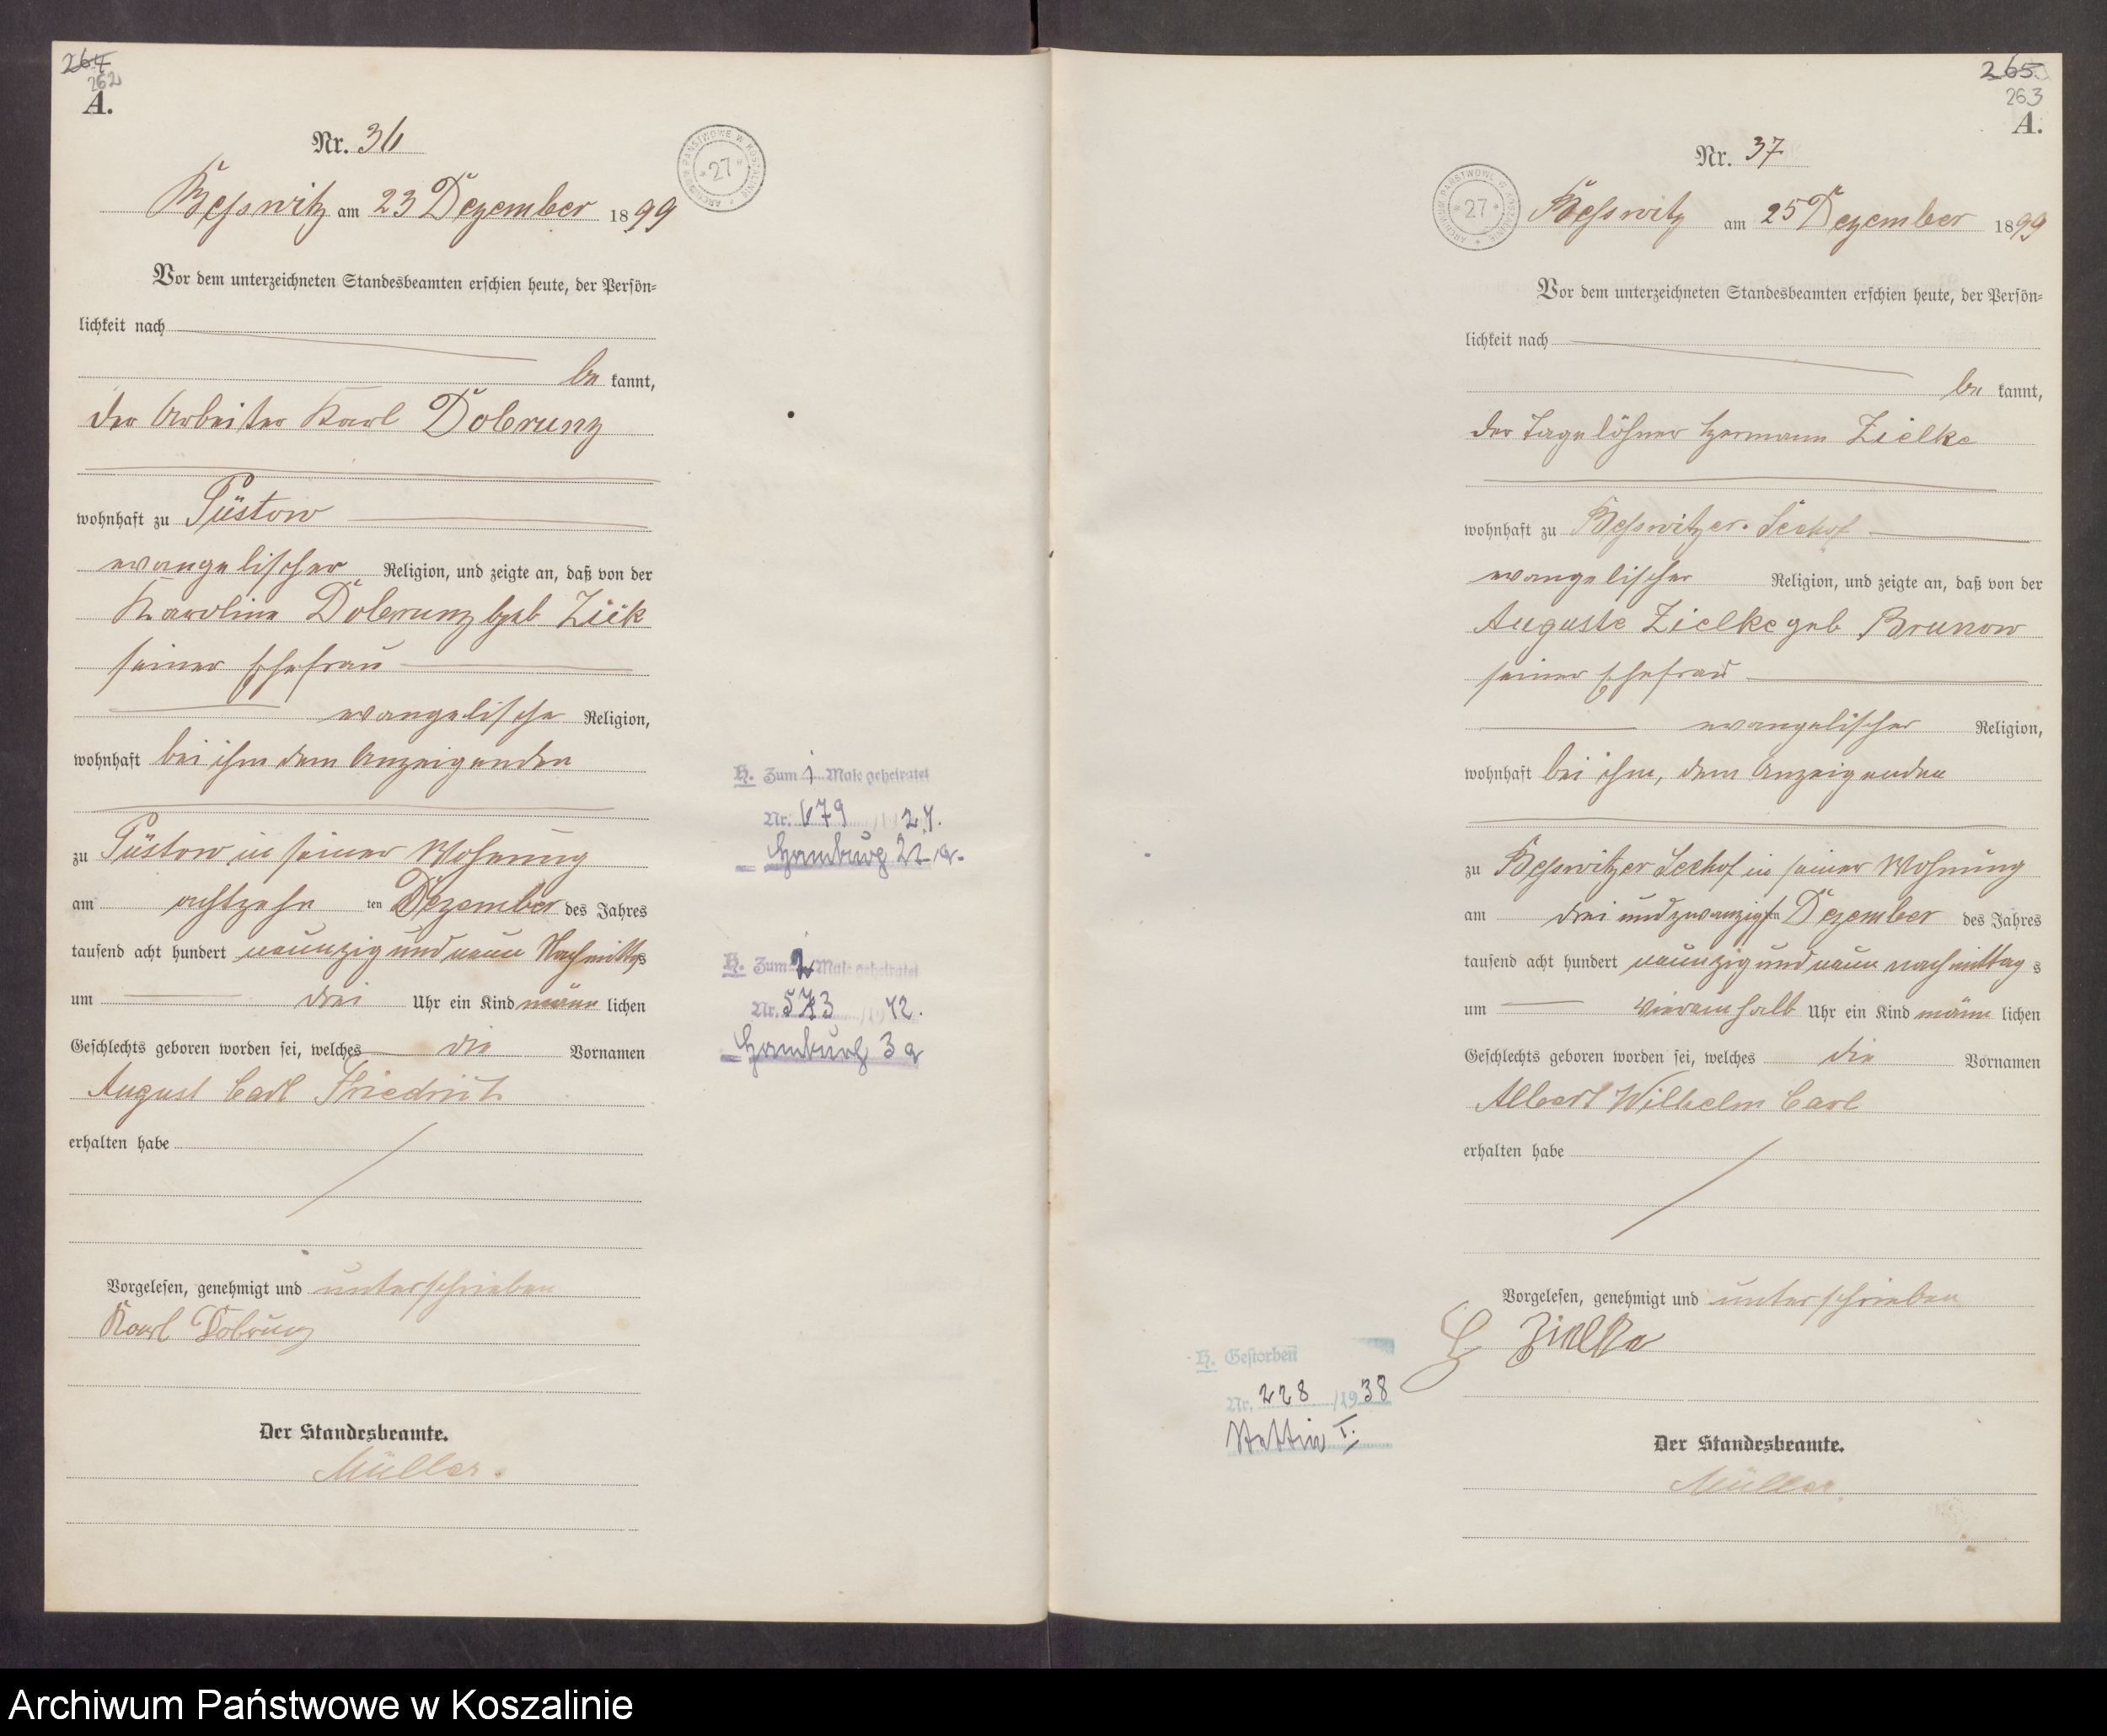 264
262
A.
Nr. 36
Besswitz am 23 Dezember 1899
Vor dem unterzeichneten Standesbeamten erschien heute, der Persön-
lichkeit nach
be kannt,
der Arbeiter Karl Dobrunz
wohnhaft zu Püstow
evangelischer Religion, und zeigte an, daß von der
Karoline Dobrunz geb
seiner Ehefrau
evangelische Religion,
wohnhaft bei ihm dem Anzeigenden
zu Püstow in seiner Wohnung
am achtzehn ten Dezember des Jahres
tausend acht hundert neunzig und neun Nachmittags
um drei Uhr ein Kind männ lichen
Geschlechts geboren worden sei, welches die Vornamen
August Carl Friedrich
erhalten habe
Vorgelesen, genehmigt und unterschrieben
Karl Dobrunz
Der Standesbeamte.
Müller.
ARCHIWUM PAŃSTWOWE W KOSZALINIE
27
H. Zum 1 Male geheiratet
Nr. 679 / 24.
Hamburg 22 a.
H. Zum 2 Male geheiratet
Nr. 573 /1942.
Hamburg 3a
265
263
A.
Nr. 37
ARCHIWUM PAŃSTWOWE W KOSZALINIE
27
Besswitz am 25 Dezember 1899
Vor dem unterzeichneten Standesbeamten erschien heute, der Persön-
lichkeit nach
be kannt,
der Tagelöhner Hermann Zielke
wohnhaft zu Besswitzer-Seehof
evangelischer Religion, und zeigte an, daß von der
Auguste Zielke geb Brunow
seiner Ehefrau
evangelischer Religion,
wohnhaft bei ihm, dem Anzeigenden
zu Besswitzer Seehof in seiner Wohnung
am drei und zwanzigsten Dezember des Jahres
tausend acht hundert neunzig und neun nachmittag s
um viereinhalb Uhr ein Kind männ lichen
Geschlechts geboren worden sei, welches die Vornamen
Albert Wilhelm Carl
erhalten habe
Vorgelesen, genehmigt und unterschrieben
H Zielke
Der Standesbeamte.
Müller.
H. Gestorben
Nr. 228 /1938
Stettin I.
Archiwum Państwowe w Koszalinie